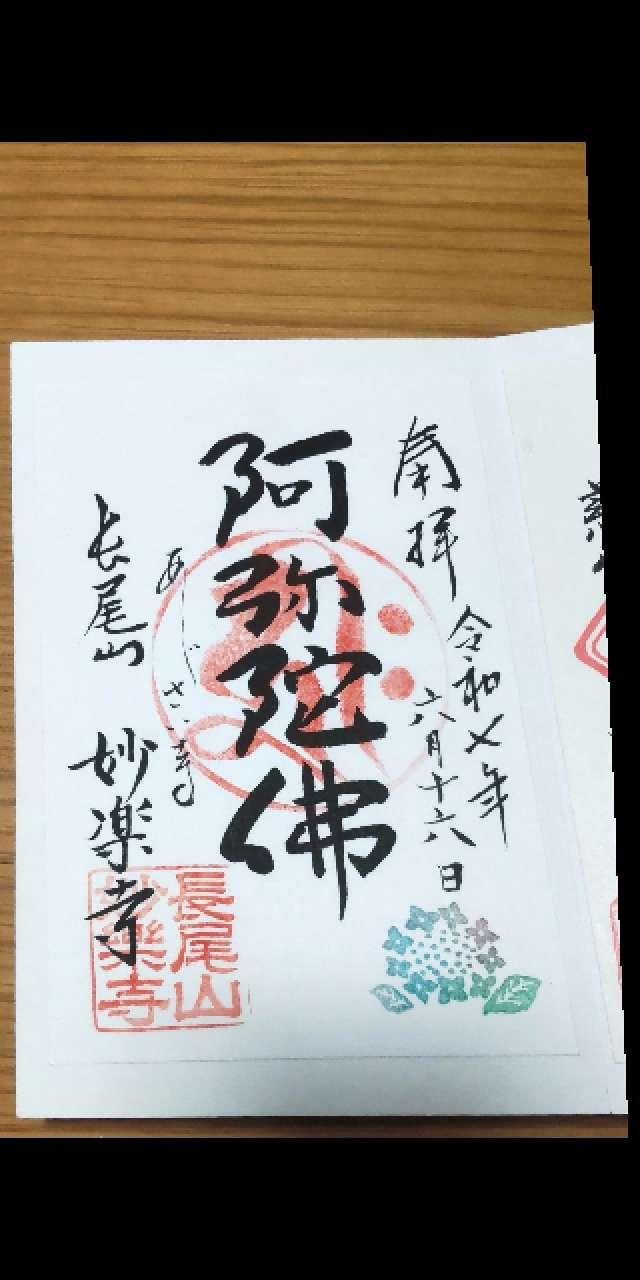 奉拝
令和七年
六月十六日
阿弥陀佛
あじさい寺
長尾山 妙楽寺
長尾山
妙樂寺